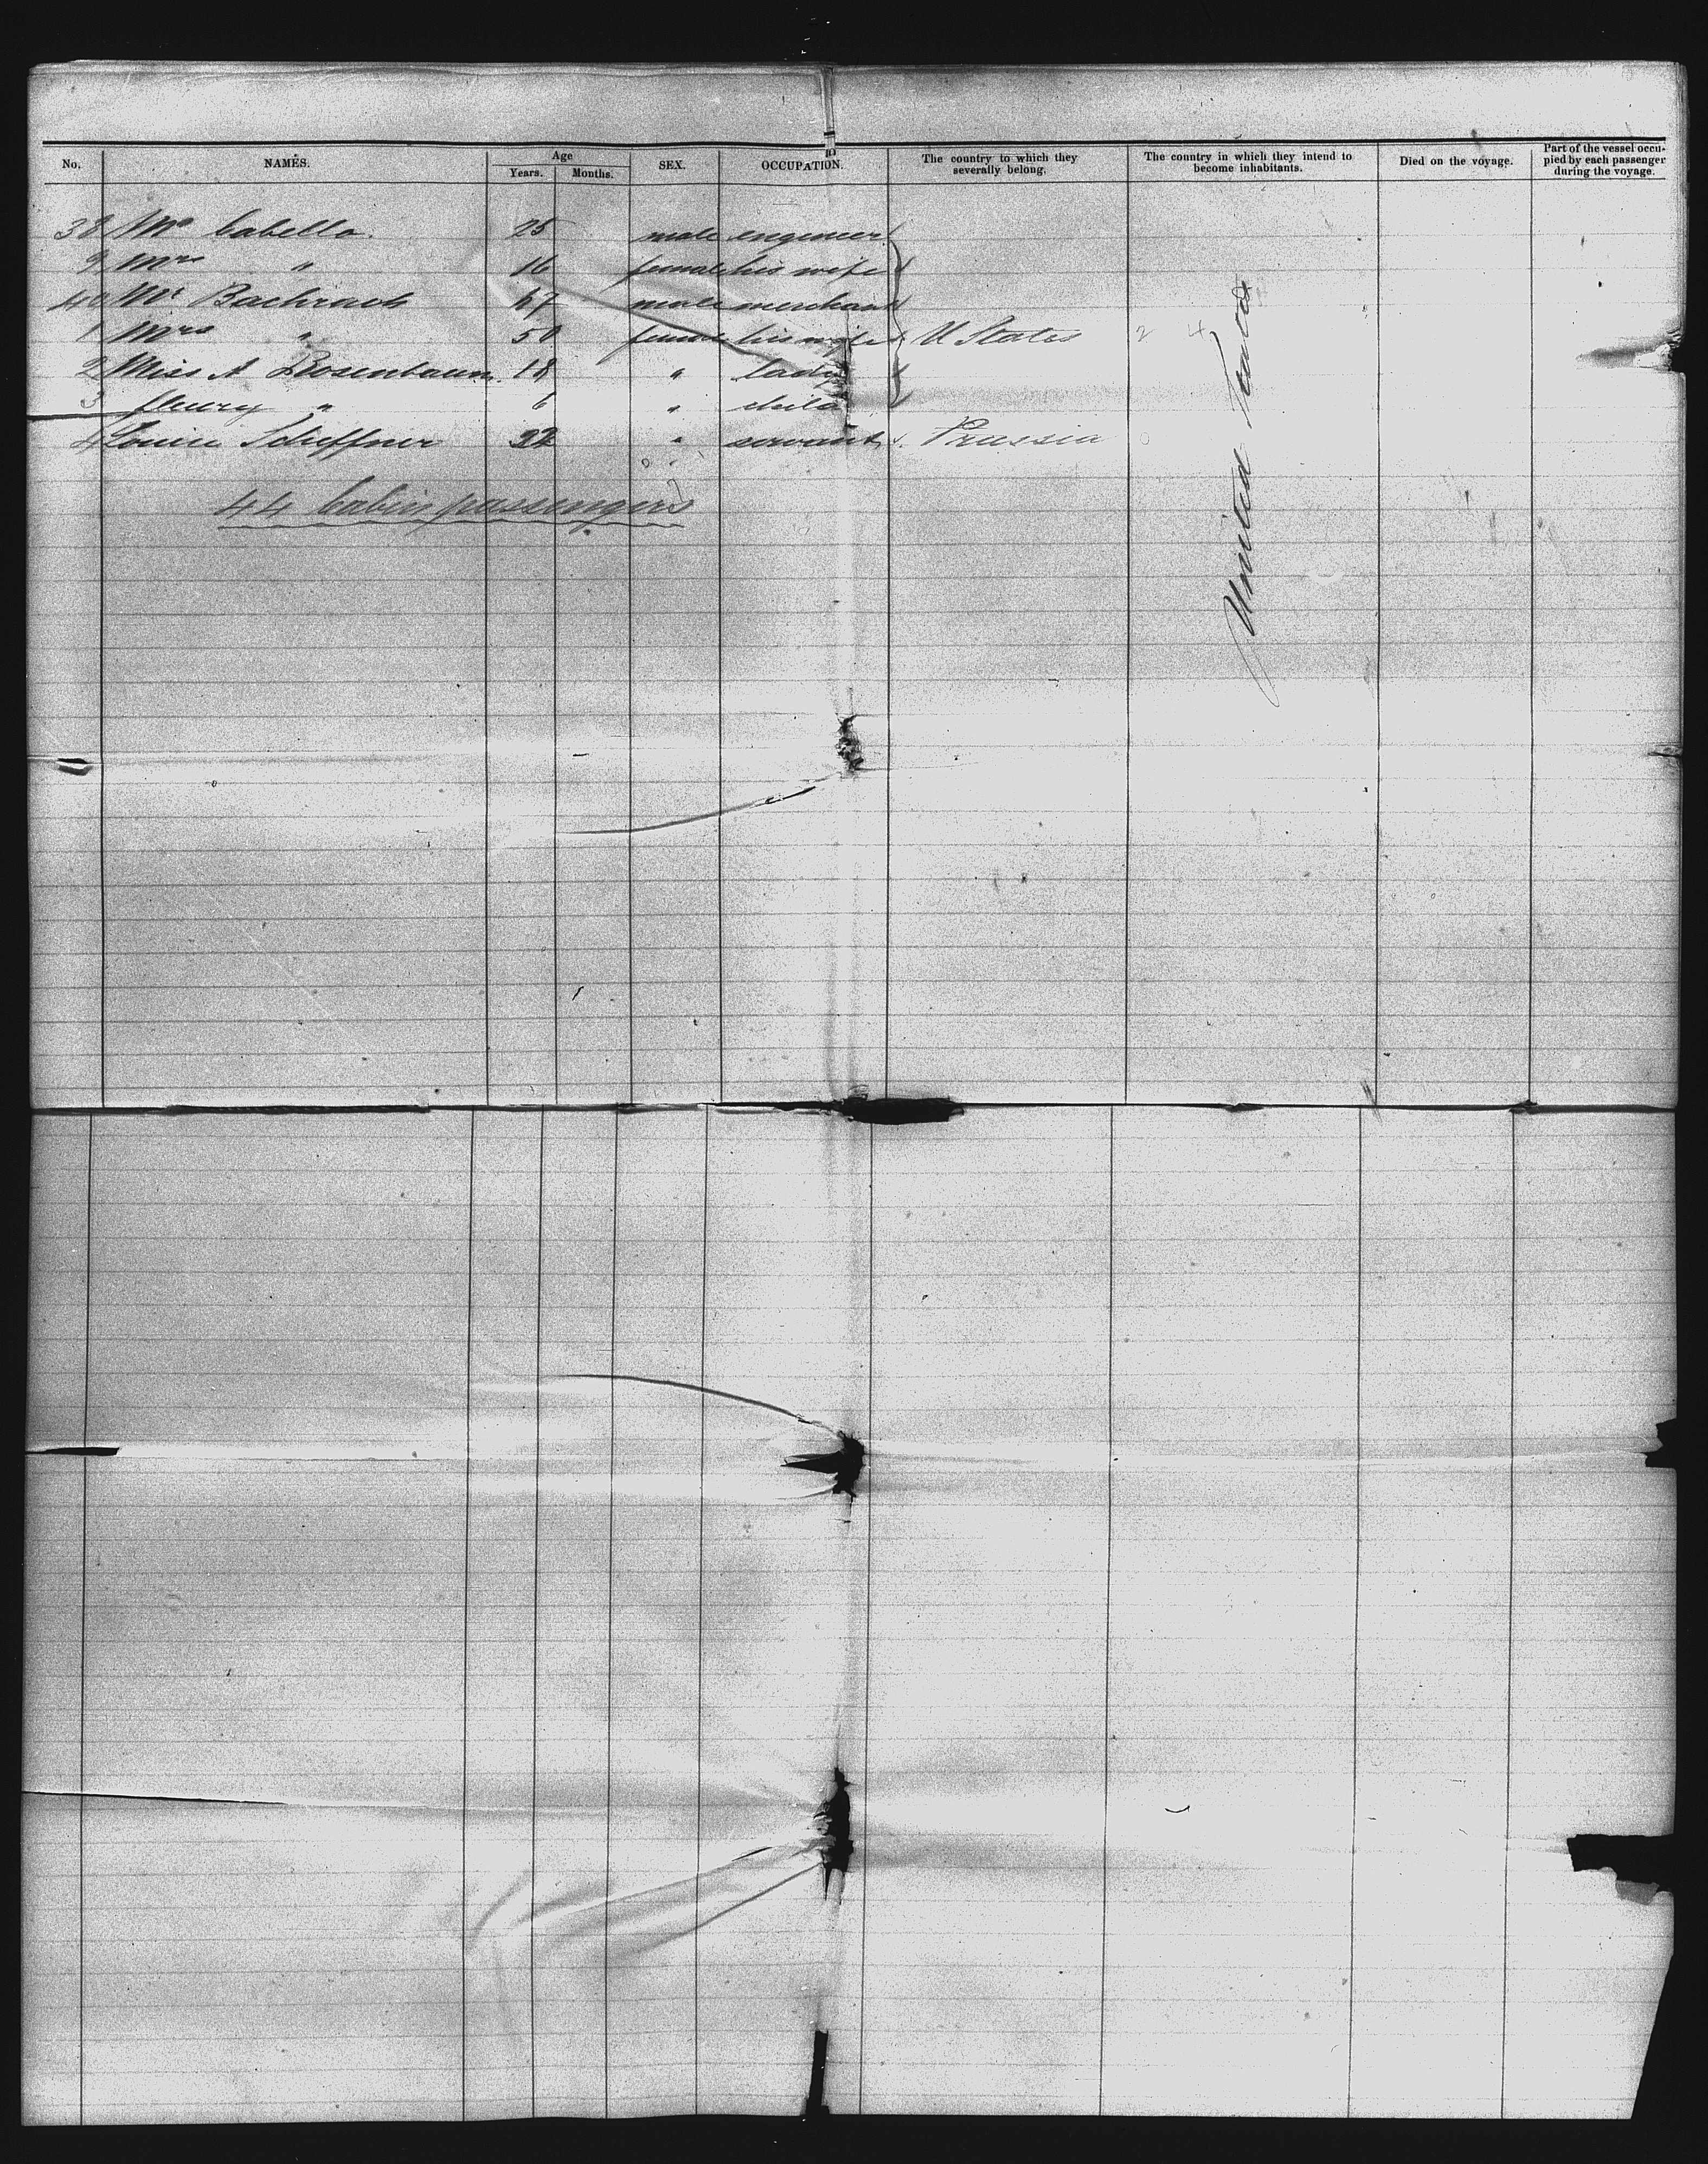 No. NAMES. Age Years. Months. SEX. OCCUPATION. The country to which they severally belong. The country in which they intend to become inhabitants. Died on the voyage. Part of the vessel occupied by each passenger during the voyage.
38 Mr Cabella. 25 male engineer
9 Mrs " 16 female his wife
40 Mr Bachrach male merchant
1 Mrs " 50 female his wife U States 2 4
2 Miss A Rosenbaum 18 " lady
3 " 6 " child
4 Louise Scheffner 22 " servant Prussia 0
44 Cabin passengers
United States